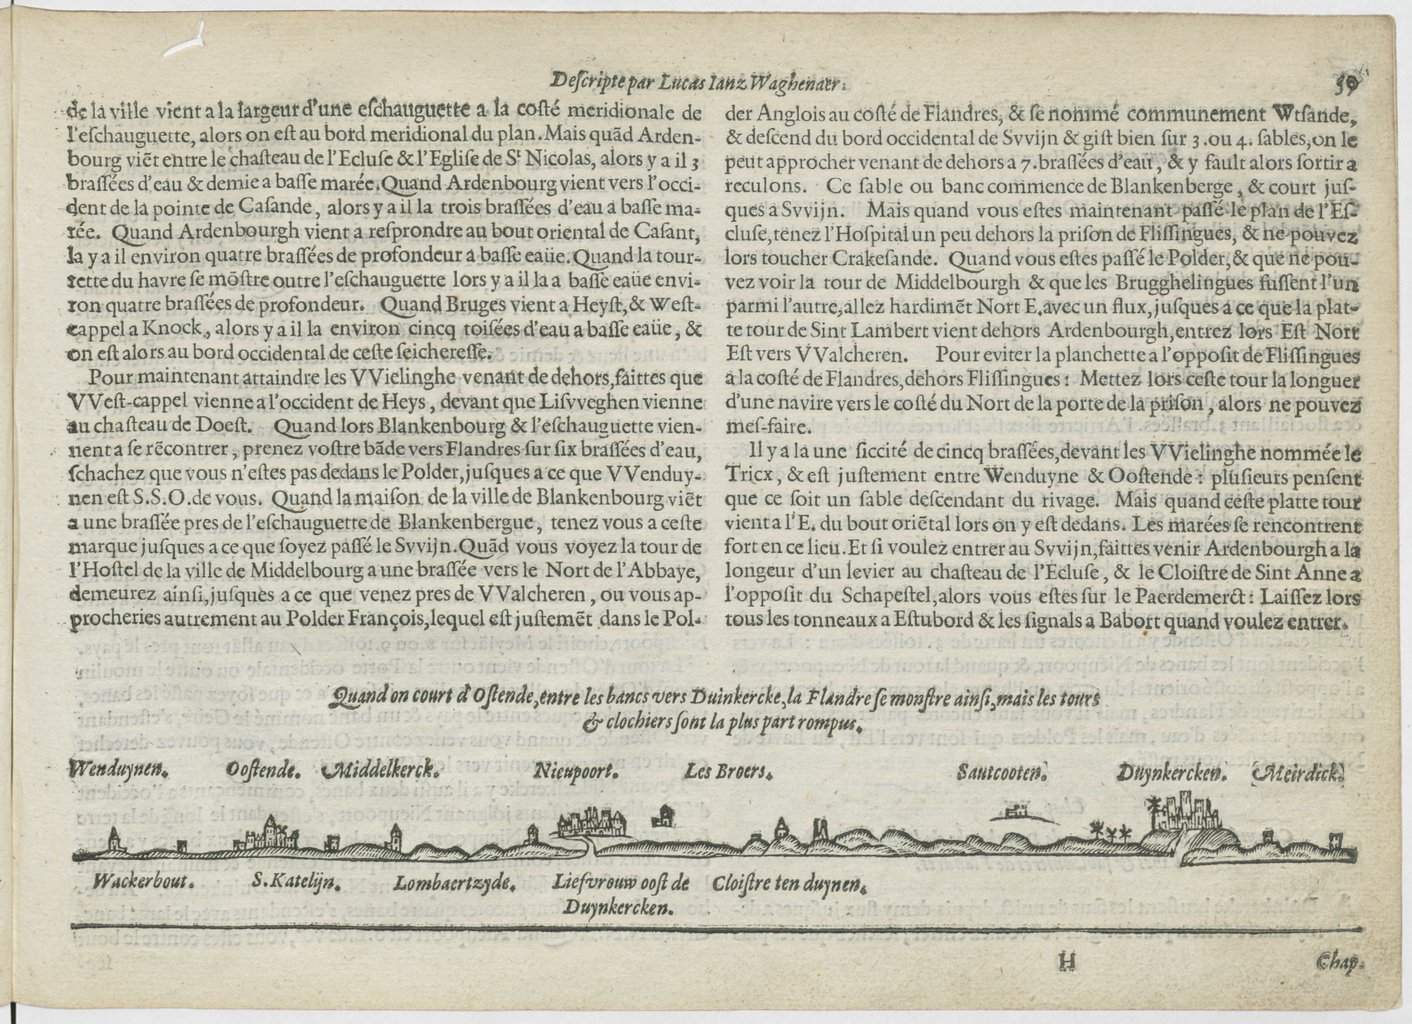 Descripte par Lucas Ianz Waghenaer. 59
de la ville vient a la largeur d'une eschauguette a la costé meridionale de
l'eschauguette, alors on est au bord meridional du plan. Mais quãd Arden-
bourg viẽt entre le chasteau de l'Ecluse & l'Eglise de St Nicolas, alors y a il 3
brassées d'eau & demie a basse marée. Quand Ardenbourg vient vers l'occi-
dent de la pointe de Casande, alors y a il la trois brassées d'eau a basse ma-
rée. Quand Ardenbourgh vient a resprondre au bout oriental de Casant,
la y a il environ quatre brassées de profondeur a basse eaüe. Quand la tour-
rette du havre se mõstre outre l'eschauguette lors y a il la a basse eaüe envi-
ron quatre brassées de profondeur. Quand Bruges vient a Heyst, & West-
cappel a Knock, alors y a il la environ cincq toisées d'eau a basse eaüe, &
on est alors au bord occidental de ceste seicheresse.
Pour maintenant attaindre les VVielinghe venant de dehors, faittes que
VVest-cappel vienne a l'occident de Heys, devant que Lisvveghen vienne
au chasteau de Doest. Quand lors Blankenbourg & l'eschauguette vien-
nent a se rẽcontrer, prenez vostre bãde vers Flandres sur six brassées d'eau,
schachez que vous n'estes pas dedans le Polder, jusques a ce que VVenduy-
nen est S.S.O. de vous. Quand la maison de la ville de Blankenbourg viẽt
a une brassée pres de l'eschauguette de Blankenbergue, tenez vous a ceste
marque jusques a ce que soyez passé le Svvijn. Quãd vous voyez la tour de
l'Hostel de la ville de Middelbourg a une brassée vers le Nort de l'Abbaye,
demeurez ainsi, jusques a ce que venez pres de VValcheren, ou vous ap-
procheries autrement au Polder François, lequel est justemẽt dans le Pol-
der Anglois au costé de Flandres, & se nommé communement Wtsande,
& descend du bord occidental de Svvijn & gist bien sur 3. ou 4. sables, on le
peut approcher venant de dehors a 7. brassées d'eau, & y fault alors sortir a
reculons. Ce sable ou banc commence de Blankenberge, & court jus-
ques a Svvijn. Mais quand vous estes maintenant passé le plan de l'Es-
cluse, tenez l'Hospital un peu dehors la prison de Flissingues, & ne pouvez
lors toucher Crakesande. Quand vous estes passé le Polder, & que ne pou-
vez voir la tour de Middelbourgh & que les Brugghelingues fussent l'un
parmi l'autre, allez hardimẽt Nort E, avec un flux, jusques a ce que la plat-
te tour de Sint Lambert vient dehors Ardenbourgh, entrez lors Est Nort
Est vers VValcheren. Pour eviter la planchette a l'opposit de Flissingues
a la costé de Flandres, dehors Flissingues: Mettez lors ceste tour la longuer
d'une navire vers le costé du Nort de la porte de la prison, alors ne pouvez
mes-faire.
Il y a la une siccité de cincq brassées, devant les VVielinghe nommée le
Tricx, & est justement entre Wenduyne & Oostende: plusieurs pensent
que ce soit un sable descendant du rivage. Mais quand ceste platte tour
vient a l'E. du bout oriẽtal lors on y est dedans. Les marées se rencontrent
fort en ce lieu. Et si voulez entrer au Svvijn, faittes venir Ardenbourgh a la
longeur d'un levier au chasteau de l'Ecluse, & le Cloistre de Sint Anne a
l'opposit du Schapestel, alors vous estes sur le Paerdemerct: Laissez lors
tous les tonneaux a Estubord & les signals a Babort quand voulez entrer.
Quand on court d'Ostende, entre les bancs vers Duinkercke, la Flandre se monstre ainsi, mais les tours
& clochiers sont la plus part rompus.
Wenduynen. Oostende. Middelkerck. Nieupoort. Les Broers. Sautcooten. Duynkercken. Meirdick.
Wackerhout. S. Katelijn. Lombaertzyde. Liefvrouw oost de Cloistre ten duynen.
Duynkercken.
H Chap.